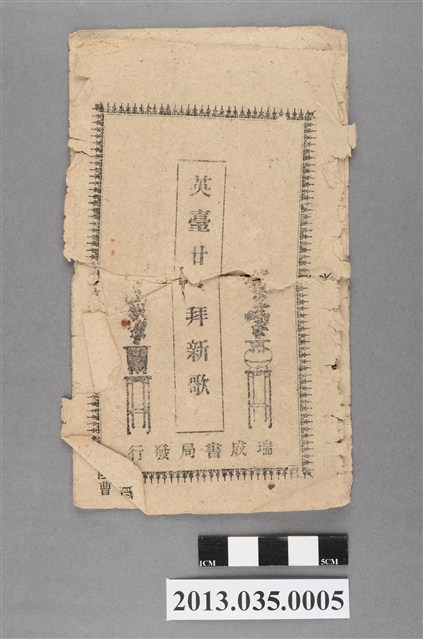 英臺廿 拜新歌
瑞成書局發行
曹
1CM
5CM
2013.035.0005